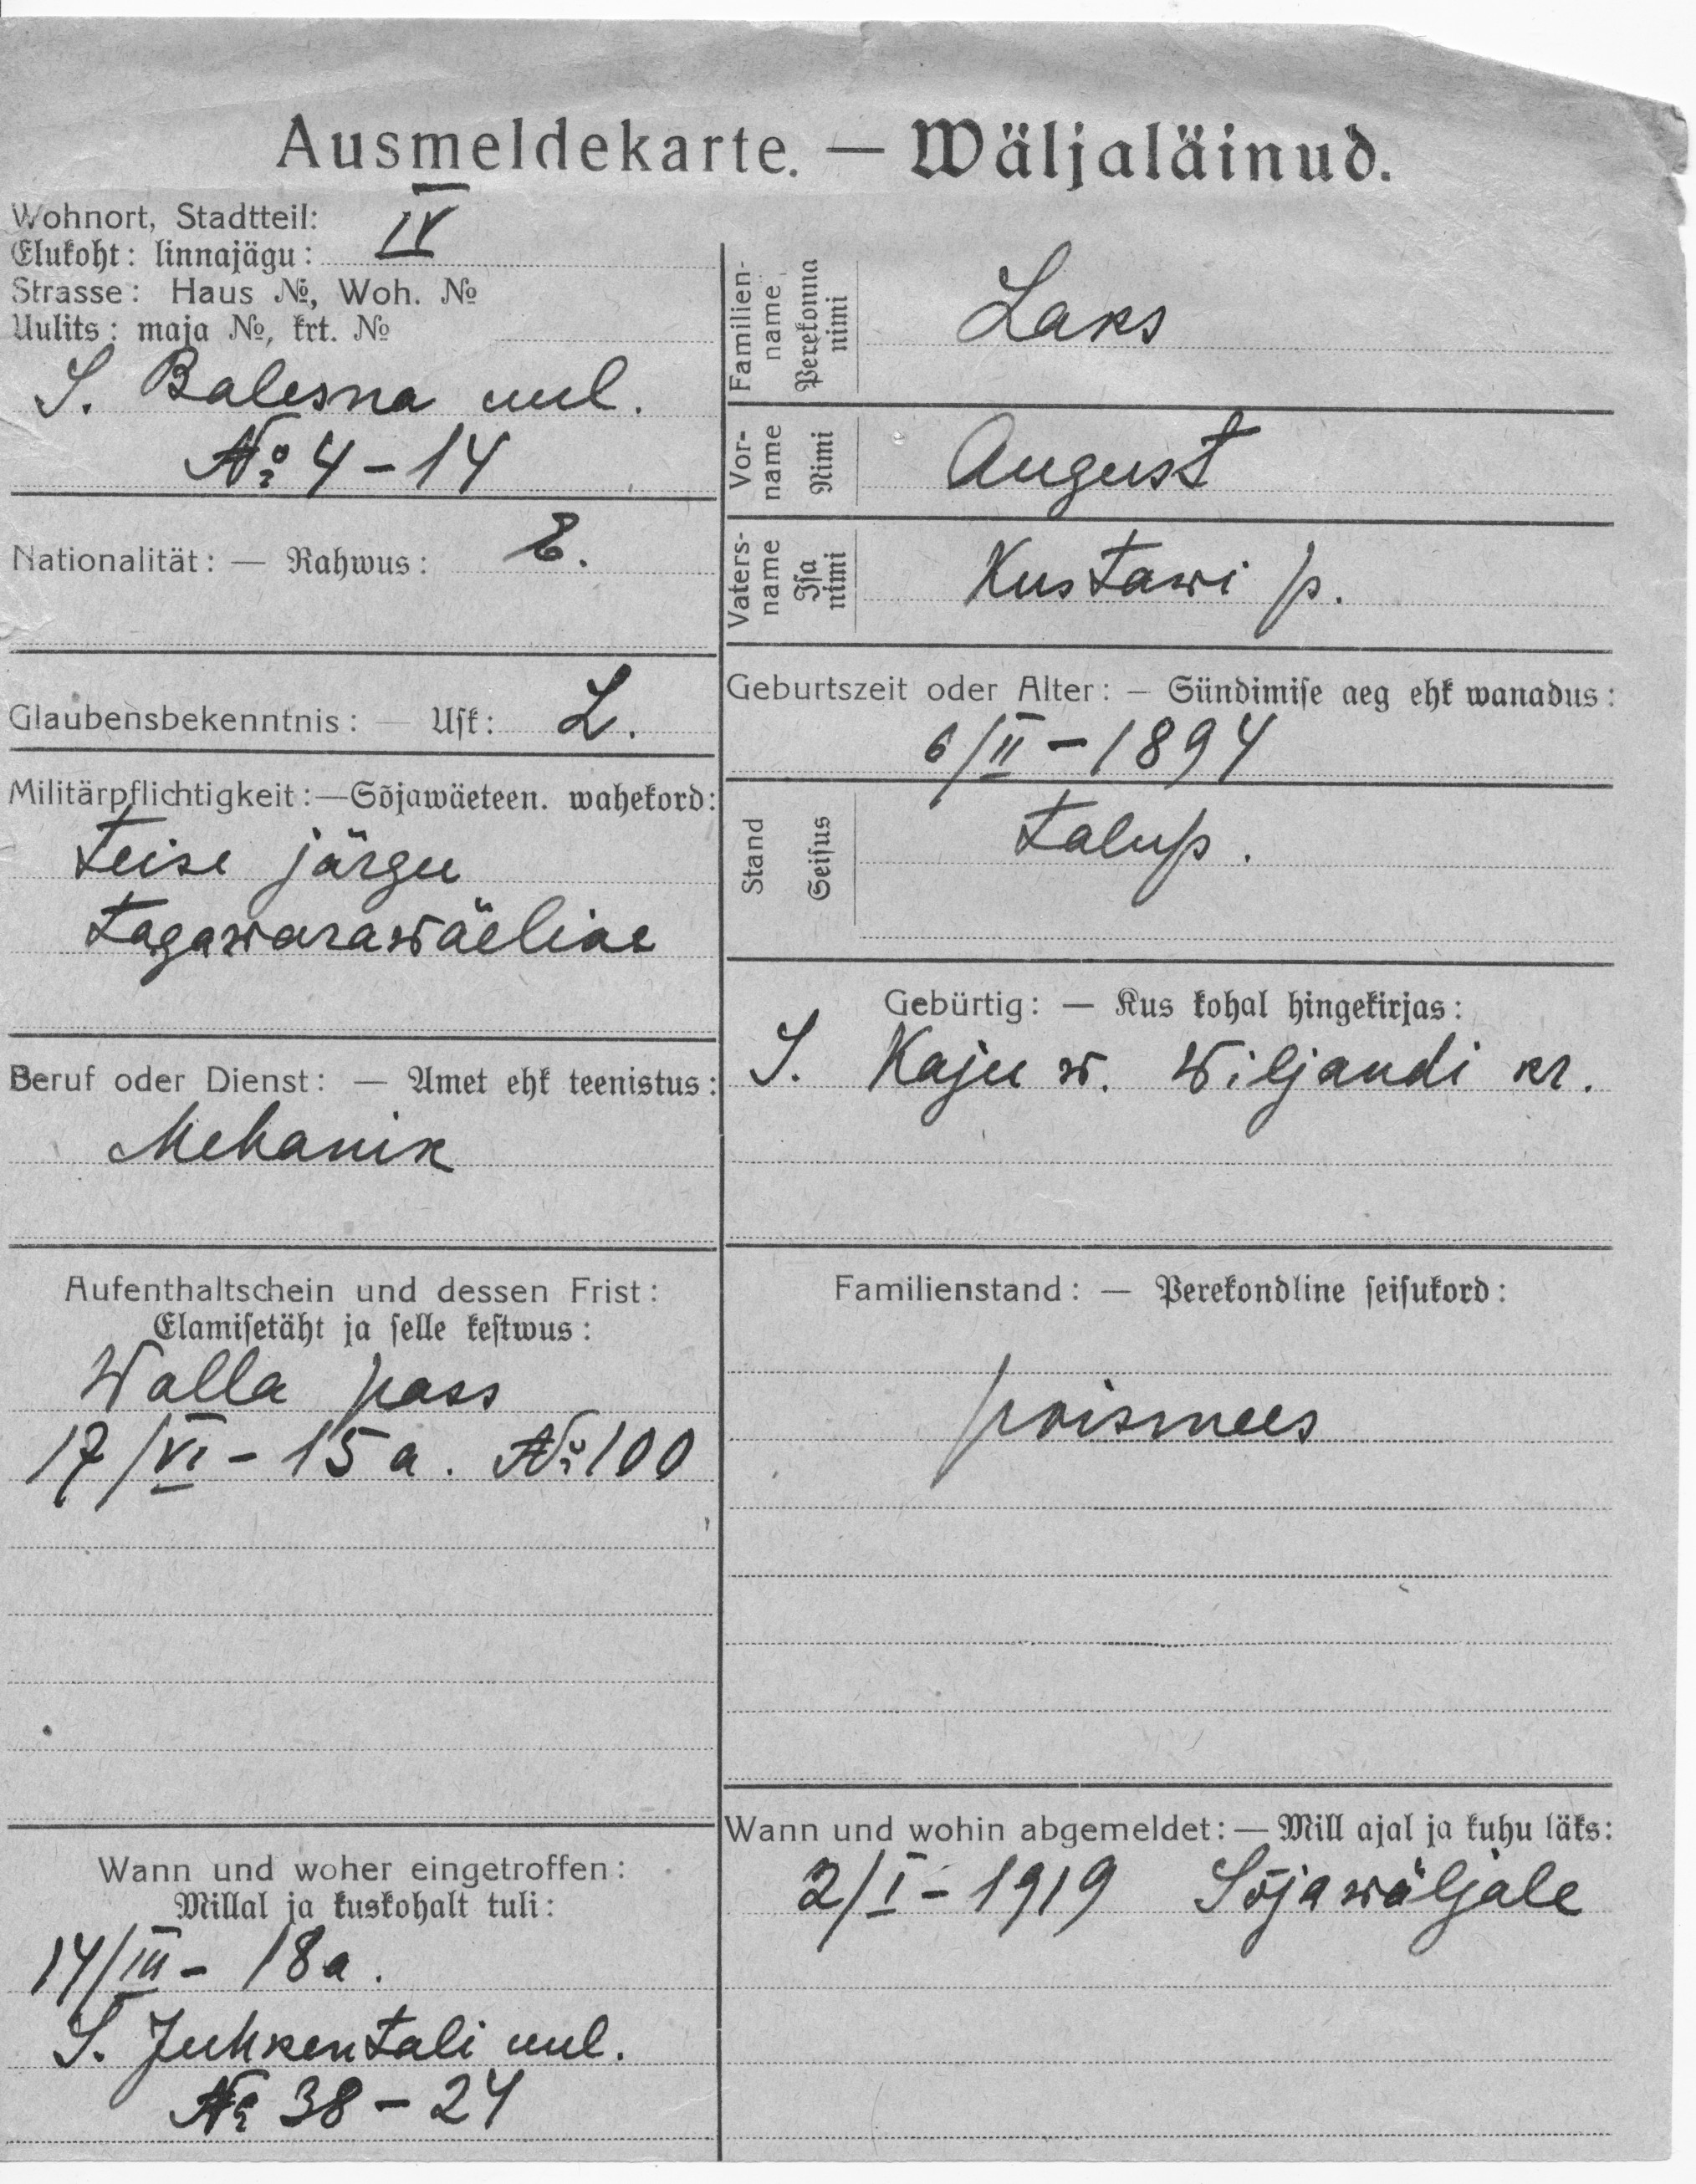 Ausmeldekarte. — Wäljaläinud.
Wohnort, Stadtteil:
Elukoht: linnajägu: IV
Strasse: Haus №, Woh. №
Uulits: maja №, krt. №
S. Balesna uul.
№ 4 – 14
Nationalität: — Rahwus: E.
Glaubensbekenntnis: — Usk: L.
Militärpflichtigkeit:—Sõjawäeteen. wahekord:
teise järgu
tagawarawäeline
Beruf oder Dienst: — Amet ehk teenistus:
Mehanik
Aufenthaltschein und dessen Frist:
Elamisetäht ja selle kestwus:
Walla pass
17/VI – 15 a. № 100
Wann und woher eingetroffen:
Millal ja kuskohalt tuli:
14/III – 18 a.
S. Juhkentali uul.
№ 38 – 24
Familien-name Perekonna nimi Laks
Vor-name Nimi August
Vaters-name Isa nimi Kustawi p.
Geburtszeit oder Alter: — Sündimise aeg ehk wanadus:
6/II – 1894
Stand Seisus talup.
Gebürtig: — Kus kohal hingekirjas:
S. Kaju w. Wiljandi kr.
Familienstand: — Perekondline seisukord:
poismees
Wann und wohin abgemeldet: — Mill ajal ja kuhu läks:
2/I – 1919 Sõjawäljale